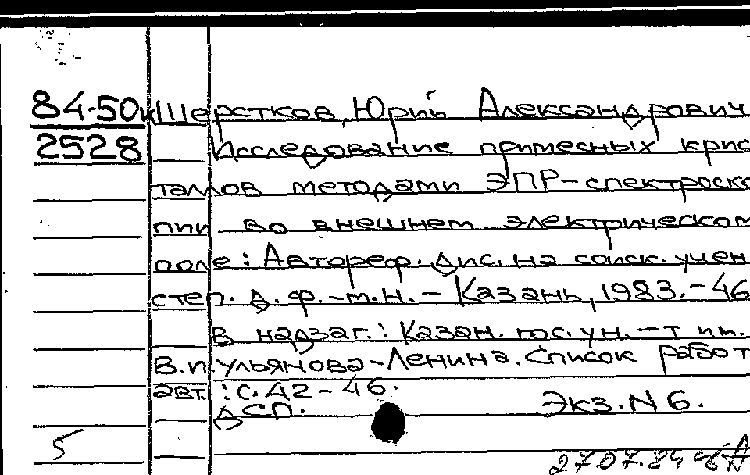 84-50к Шерстков, Юрий Александрович
2528 Исследование примесных крис
таллов методами ЭПР-спектроско
пии во внешнем электрическом
поле: Автореф. дис. на соиск. учен
степ. д. ф.-м.н. - Казань, 1983. - 46
В надзаг.: Казан. гос. ун.-т им.
В.И. Ульянова-Ленина. Список работ
авт.: с. 42-46.
ДСП. Экз. N 6.
5
27.07.84